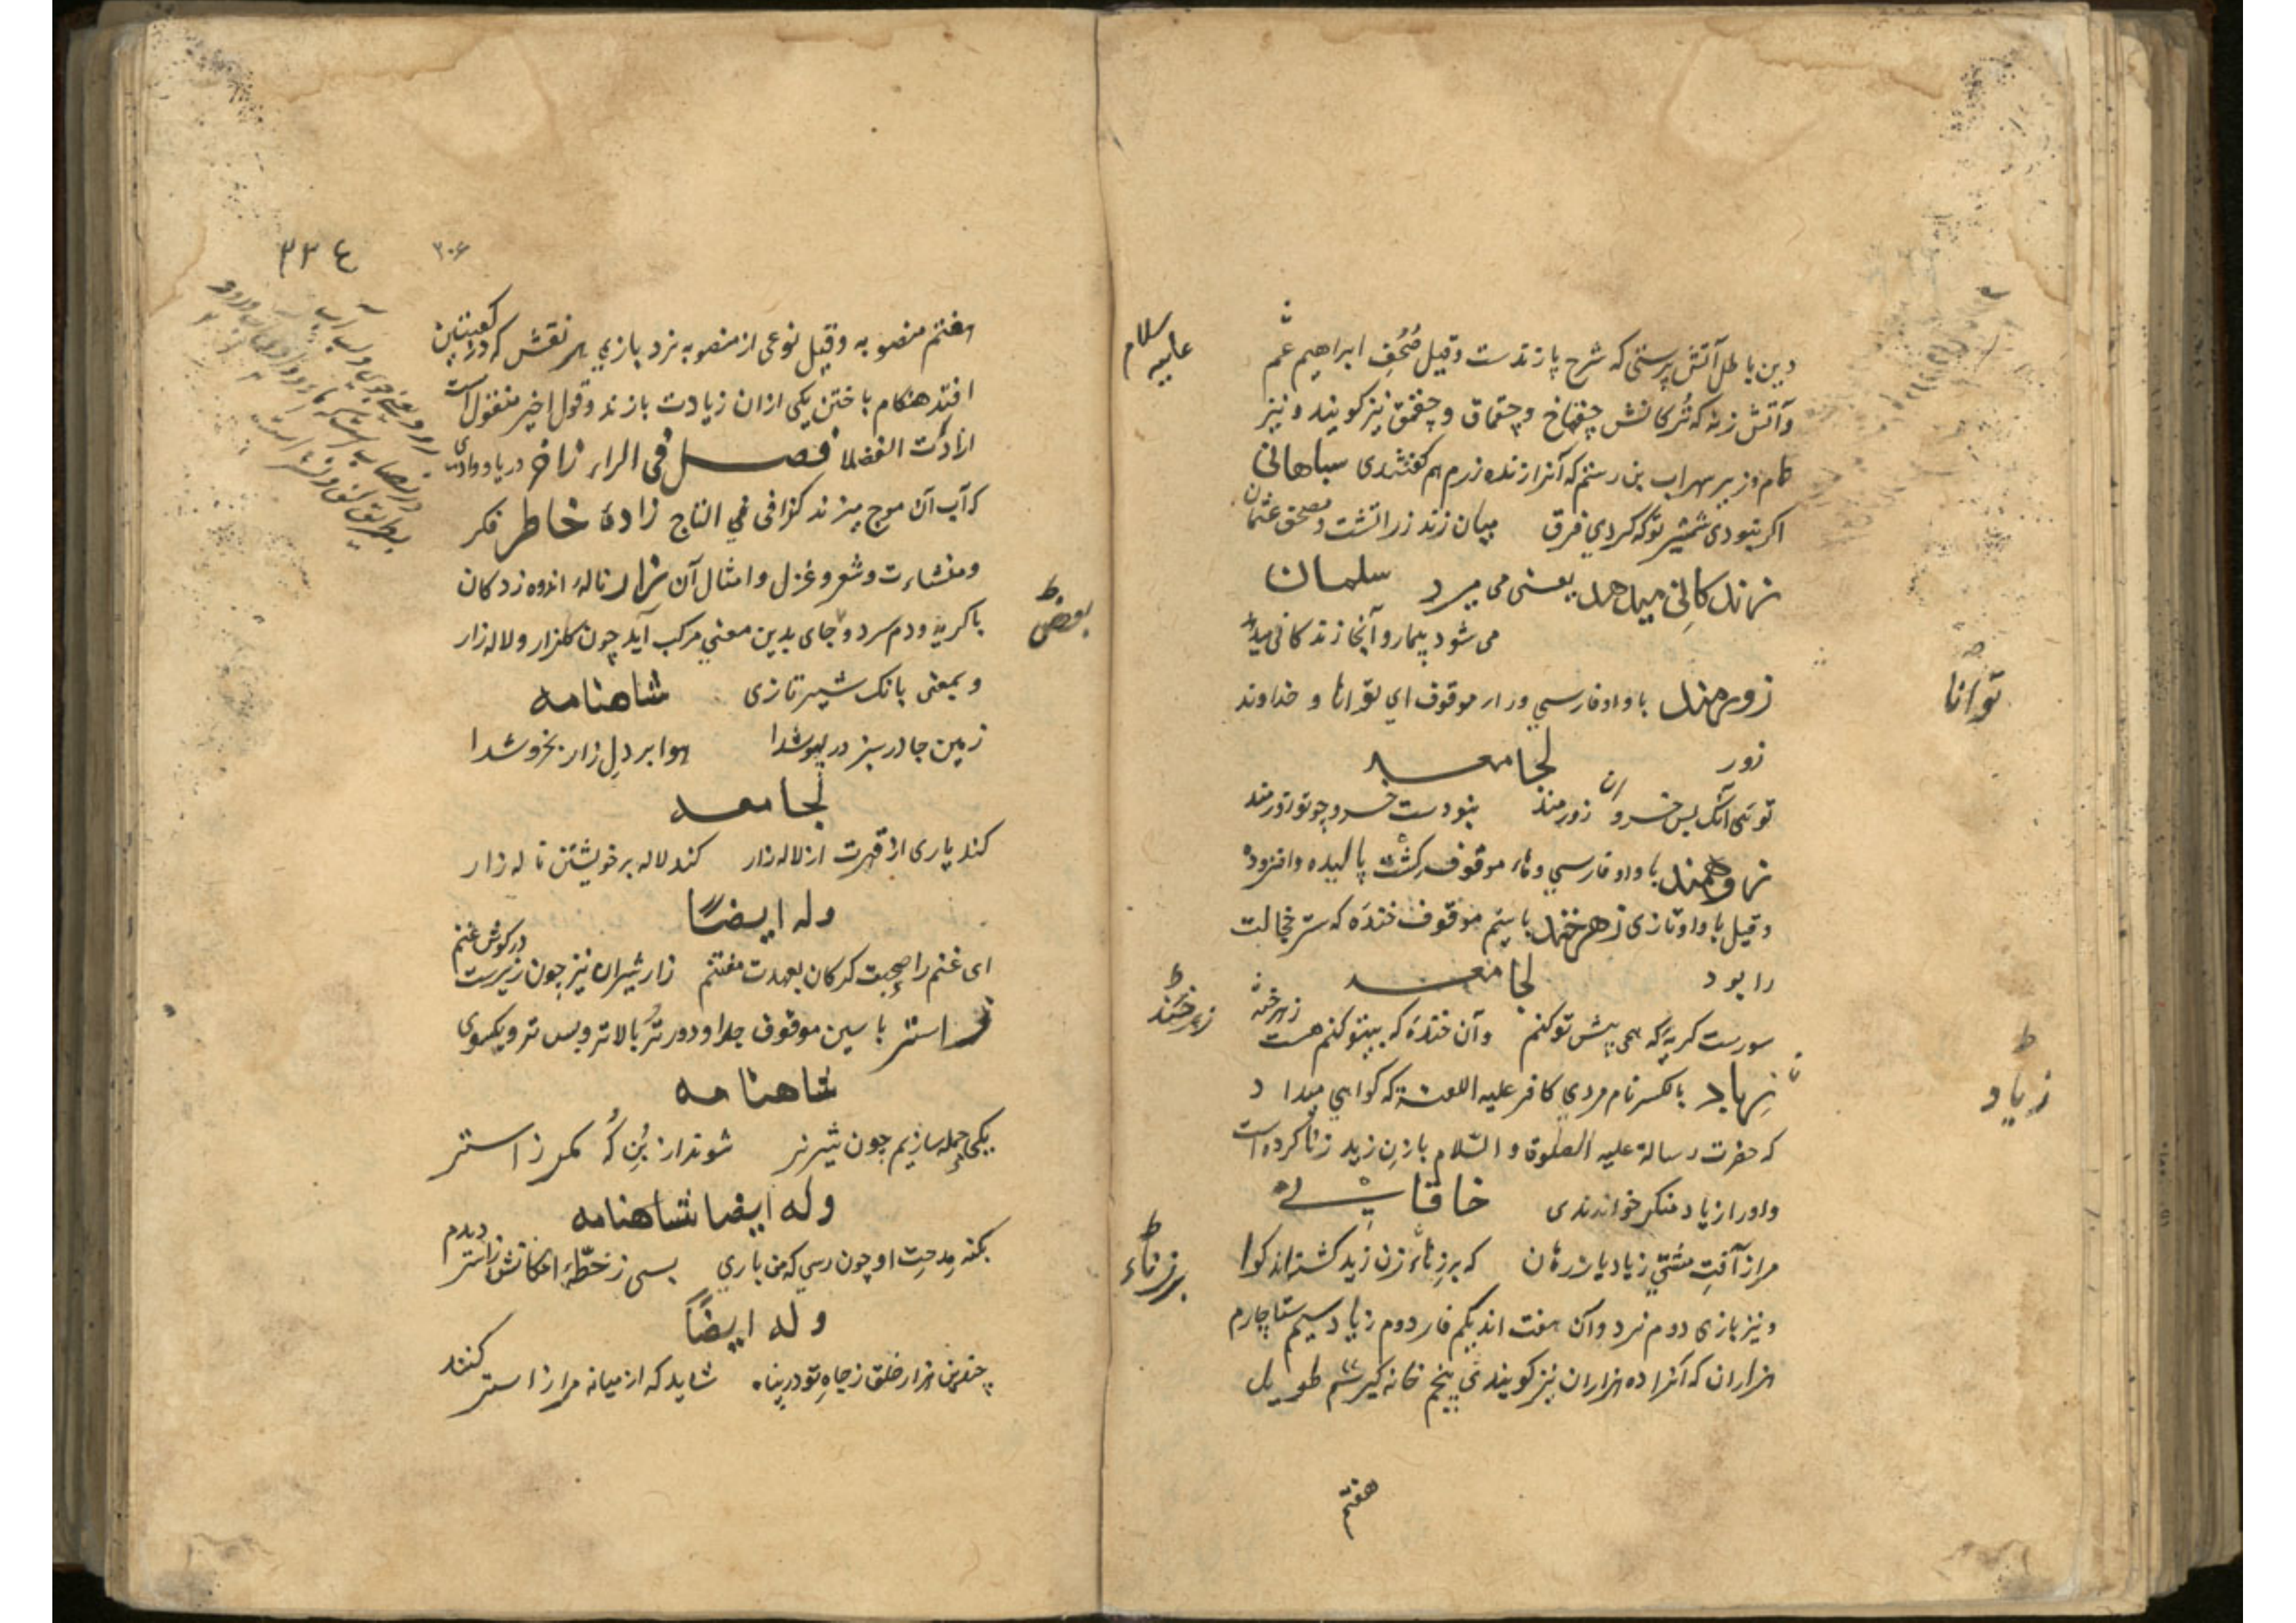 دین باطل آتش پرستی که شرح پازندست و قیل صُحُفِ ابراهیم عم
علیه سلام
و آتش زنه که تُرکانش چخماخ و چقماق و چقمق نیز گویند و نیز
نام وزیر سهراب بن رستم که آنرا زنده رزم هم گفتندی سپاهانی
اگر نبودی شمشیر تو که کردی فرق میان زند زراتشت و مصحف عثمان
زندکانی میدهد یعنی می میرد سلمان
می شود بیمار و آنجا زندکانی میدهد
زورمند با واو فارسی و راء موقوف ای توانا و خداوند
توانا
زور لجامعه
توئی آنک بس خسروان زورمند نبودست خسرو چو تو زورمند
زوهمند با واو فارسی و هاء موقوف کشت بالیده و افزوده
و قیل با واو تازی زهرخند با سیم موقوف خندَه که ستر خجالت
را بود لجامعه
سورست کریَه که همی پیش تو کنم و آن خندَه که بیتو کنم هست زهرخند
زهرخند
زِیاد بالکسر نام مردی کافر علیه اللعنة که گواهی میداد
زیاد
که حضرت رسالة علیه الصلوة و السّلام با زنِ زید زنا کرده است
و او را زیاد منکر خواندندی خاقانی
مرا ز آفتِ مشتی زیاد باز رهان که بر زِناءِ زن زید گشته‌اند گوا
بر زناء
و نیز بازی دوم نرد و آن هفت اند یکم فارد دوم زیاد سیم ستا چارم
هزاران که آنرا ده هزاران نیز گویند پنجم خانه گیر ششم طویل
هفتم
٣٣٤
٣٠۶
هفتم منصوبه و قیل نوعی از منصوبه نرد بازی هر نقش که در کعبتین
افتد هنگام باختن یکی ازان زیادت بازند و قول اخیر منقول است
از ادات الفضلا فصل فی الراء زاخر دریا و وادی
که آب آن موج میزند کذا فی التاج زادهٔ خاطر فکر
و منشاءت و شعر و غزل و امثال آن زار نالهٔ اندوه زدکان
با کریه و دم سرد و جای بدین معنی مرکب آید چون گلزار و لاله زار
بعض
و بمعنی بانک شیر تازی شاهنامه
زمین چادر سبز در پوشدا هوا بر دلِ زار بخروشدا
لجامعه
کند یاری از قهرت ار لاله زار کند لاله بر خویشتن ناله زار
وله ایضاً
ای غنم را صحبت کرکان بعهدت مغتنم زار شیران نیز چون زیرست در کوش غنم
زاستر با سین موقوف جدا و دورتر بالاتر و پس تر و یکسوی
شاهنامه
یکی حمله سازیم چون شیر نر شوند از بُنِ کُه کمر زاستر
وله ایضا شاهنامه
بکنه مِدحتِ او چون رسی که من باری بسی ز خطّهٔ امکانش زاستر دیدم
وله ایضاً
چندین هزار خلق ز جاهِ تو در پناه شاید که از میانه مرا زاستر کنند